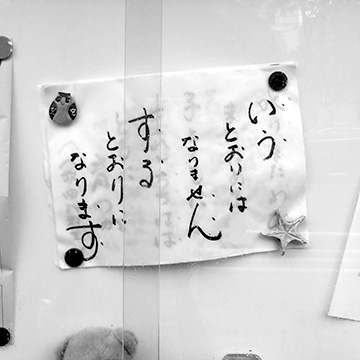 いう
とおりには
なりません
する
とおりに
なります